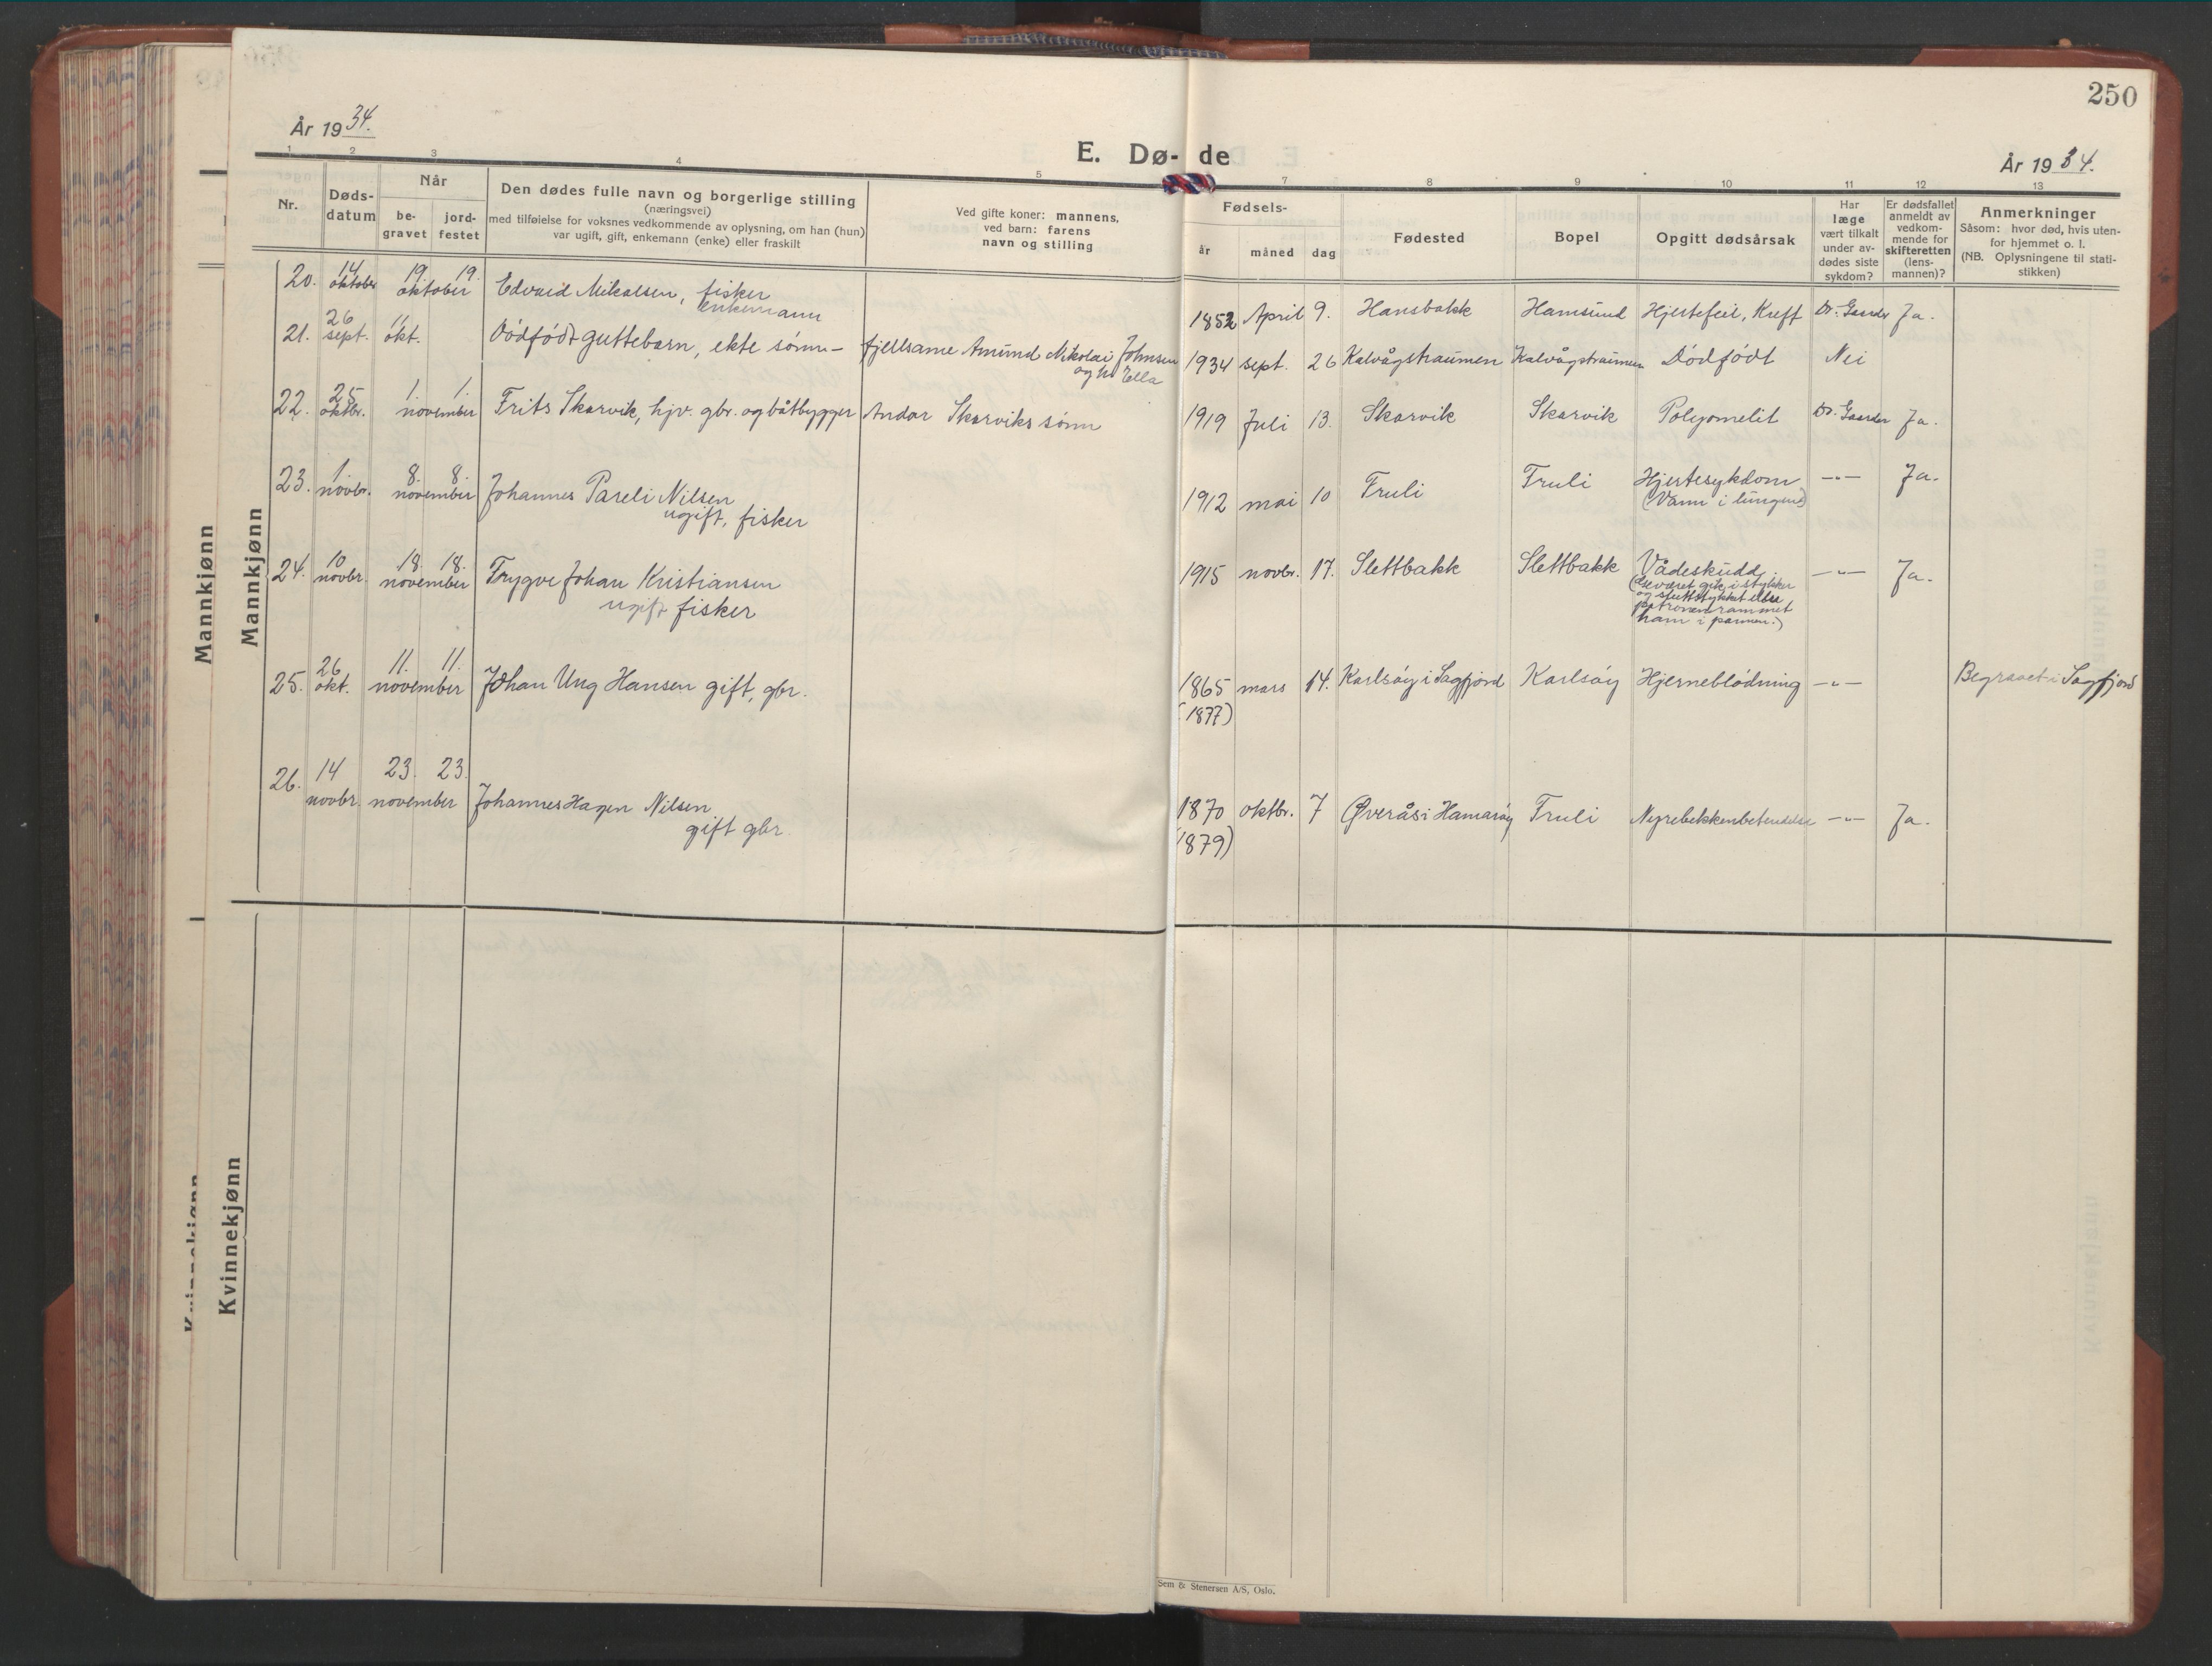 250
År 1934.
E. Dø- de
År 1934.
1 2 3 4 5 7 8 9 10 11 12 13
Nr.
Døds-
datum
Når
be-
gravet
jord-
festet
Den dødes fulle navn og borgerlige stilling
(næringsvei)
med tilføielse for voksnes vedkommende av oplysning, om han (hun)
var ugift, gift, enkemann (enke) eller fraskilt
Ved gifte koner: mannens,
ved barn: farens
navn og stilling
Fødsels-
år måned dag
Fødested
Bopel
Opgitt dødsårsak
Har
læge
vært tilkalt
under av-
dødes siste
sykdom?
Er dødsfallet
anmeldt av
vedkom-
mende for
skifteretten
(lens-
mannen)?
Anmerkninger
Såsom: hvor død, hvis uten-
for hjemmet o. l.
(NB. Oplysningene til stati-
stikken)
Mannkjønn
Mannkjønn
20. 14 oktober 19. 19. oktober Edvard Mikalsen, fisker
enkemann
1852 April 9. Hansbakk Hamsund Hjertefeil, Kreft Dr. Gaarder Ja.
21. 26 sept. 11 okt. Dödfödt guttebarn, ekte sönn - fjellsame Amund Nikolai Johnsen
og h. Ella
1934 sept. 26 Kalvågstraumen Kalvågstraumen Dödfödt Nei
22. 25 oktbr. 1. 1. november Frits Skarvik, hjv. gbr. og båtbygger Andor Skarviks sönn
1919 Juli 13. Skarvik Skarvik Polyomelit Dr. Gaarder Ja.
23. 1. novbr. 8. 8. november Johannes Pareli Nilsen
ugift, fisker
1912 mai 10 Truli Truli Hjertesykdom -"- Ja.
(Vann i lungene)
24. 10 novbr. 18. 18. november Trygve Johan Kristiansen
ugift fisker
1915 novbr. 17. Slettbakk Slettbakk Vådeskudd. -"- Ja.
(Geværet gikk i stykker
og sluttstykket eller
patronen rammet
ham i pannen.)
25. 26 okt. 11. 11. november Johan Ung Hansen gift, gbr.
1865 mars 14. Karlsöy i Sagfjord Karlsöy Hjerneblödning -"- Begravet i Sagfjord
(1877)
26. 14 novbr. 23. 23. november Johannes Hagen Nilsen
gift gbr.
1870 oktbr. 7 Øverås i Hamaröy Truli Nyrebekkenbetendelse -"- Ja.
(1879)
Kvinnekjønn
Kvinnekjønn
Sem & Stenersen A/S, Oslo.